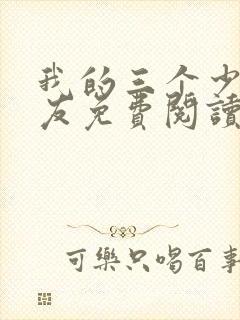 我的三个少
友免費閱讀
可樂只喝百事